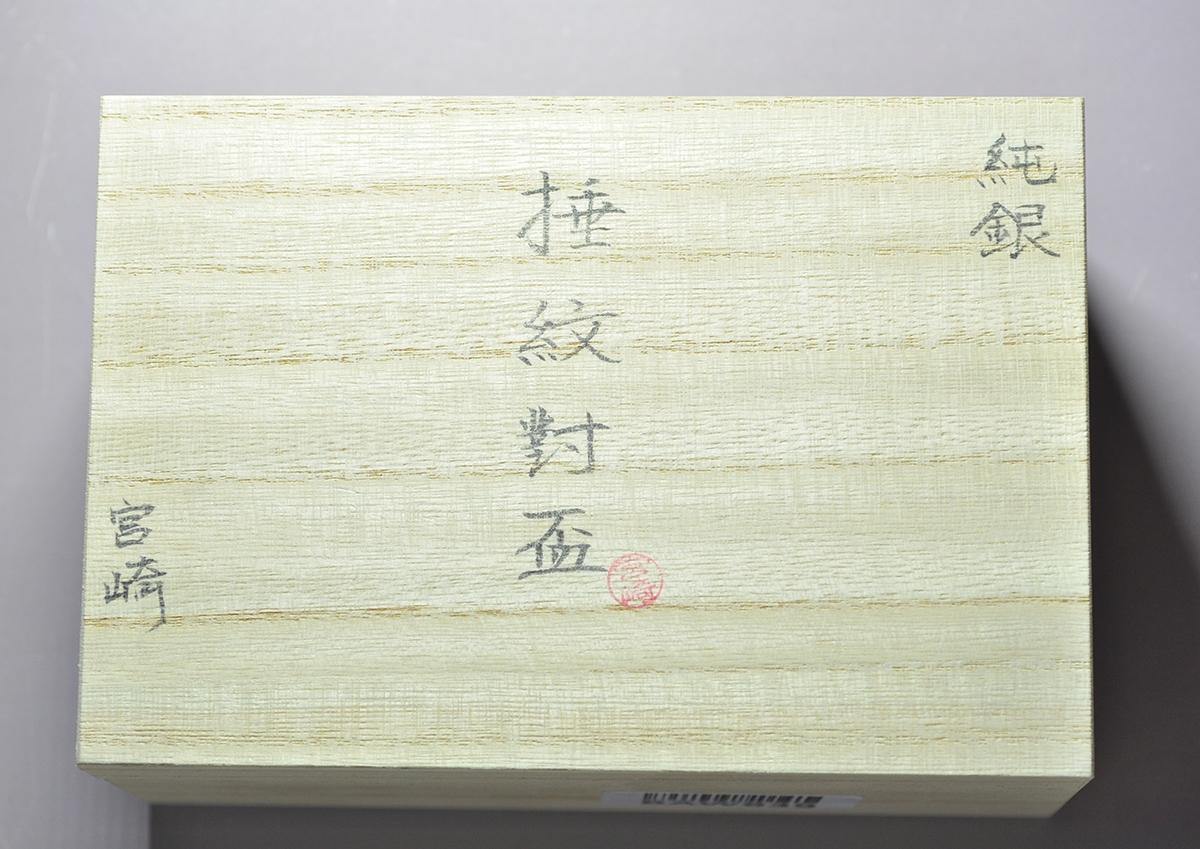 純銀
捶紋對盃
宮崎
宮崎